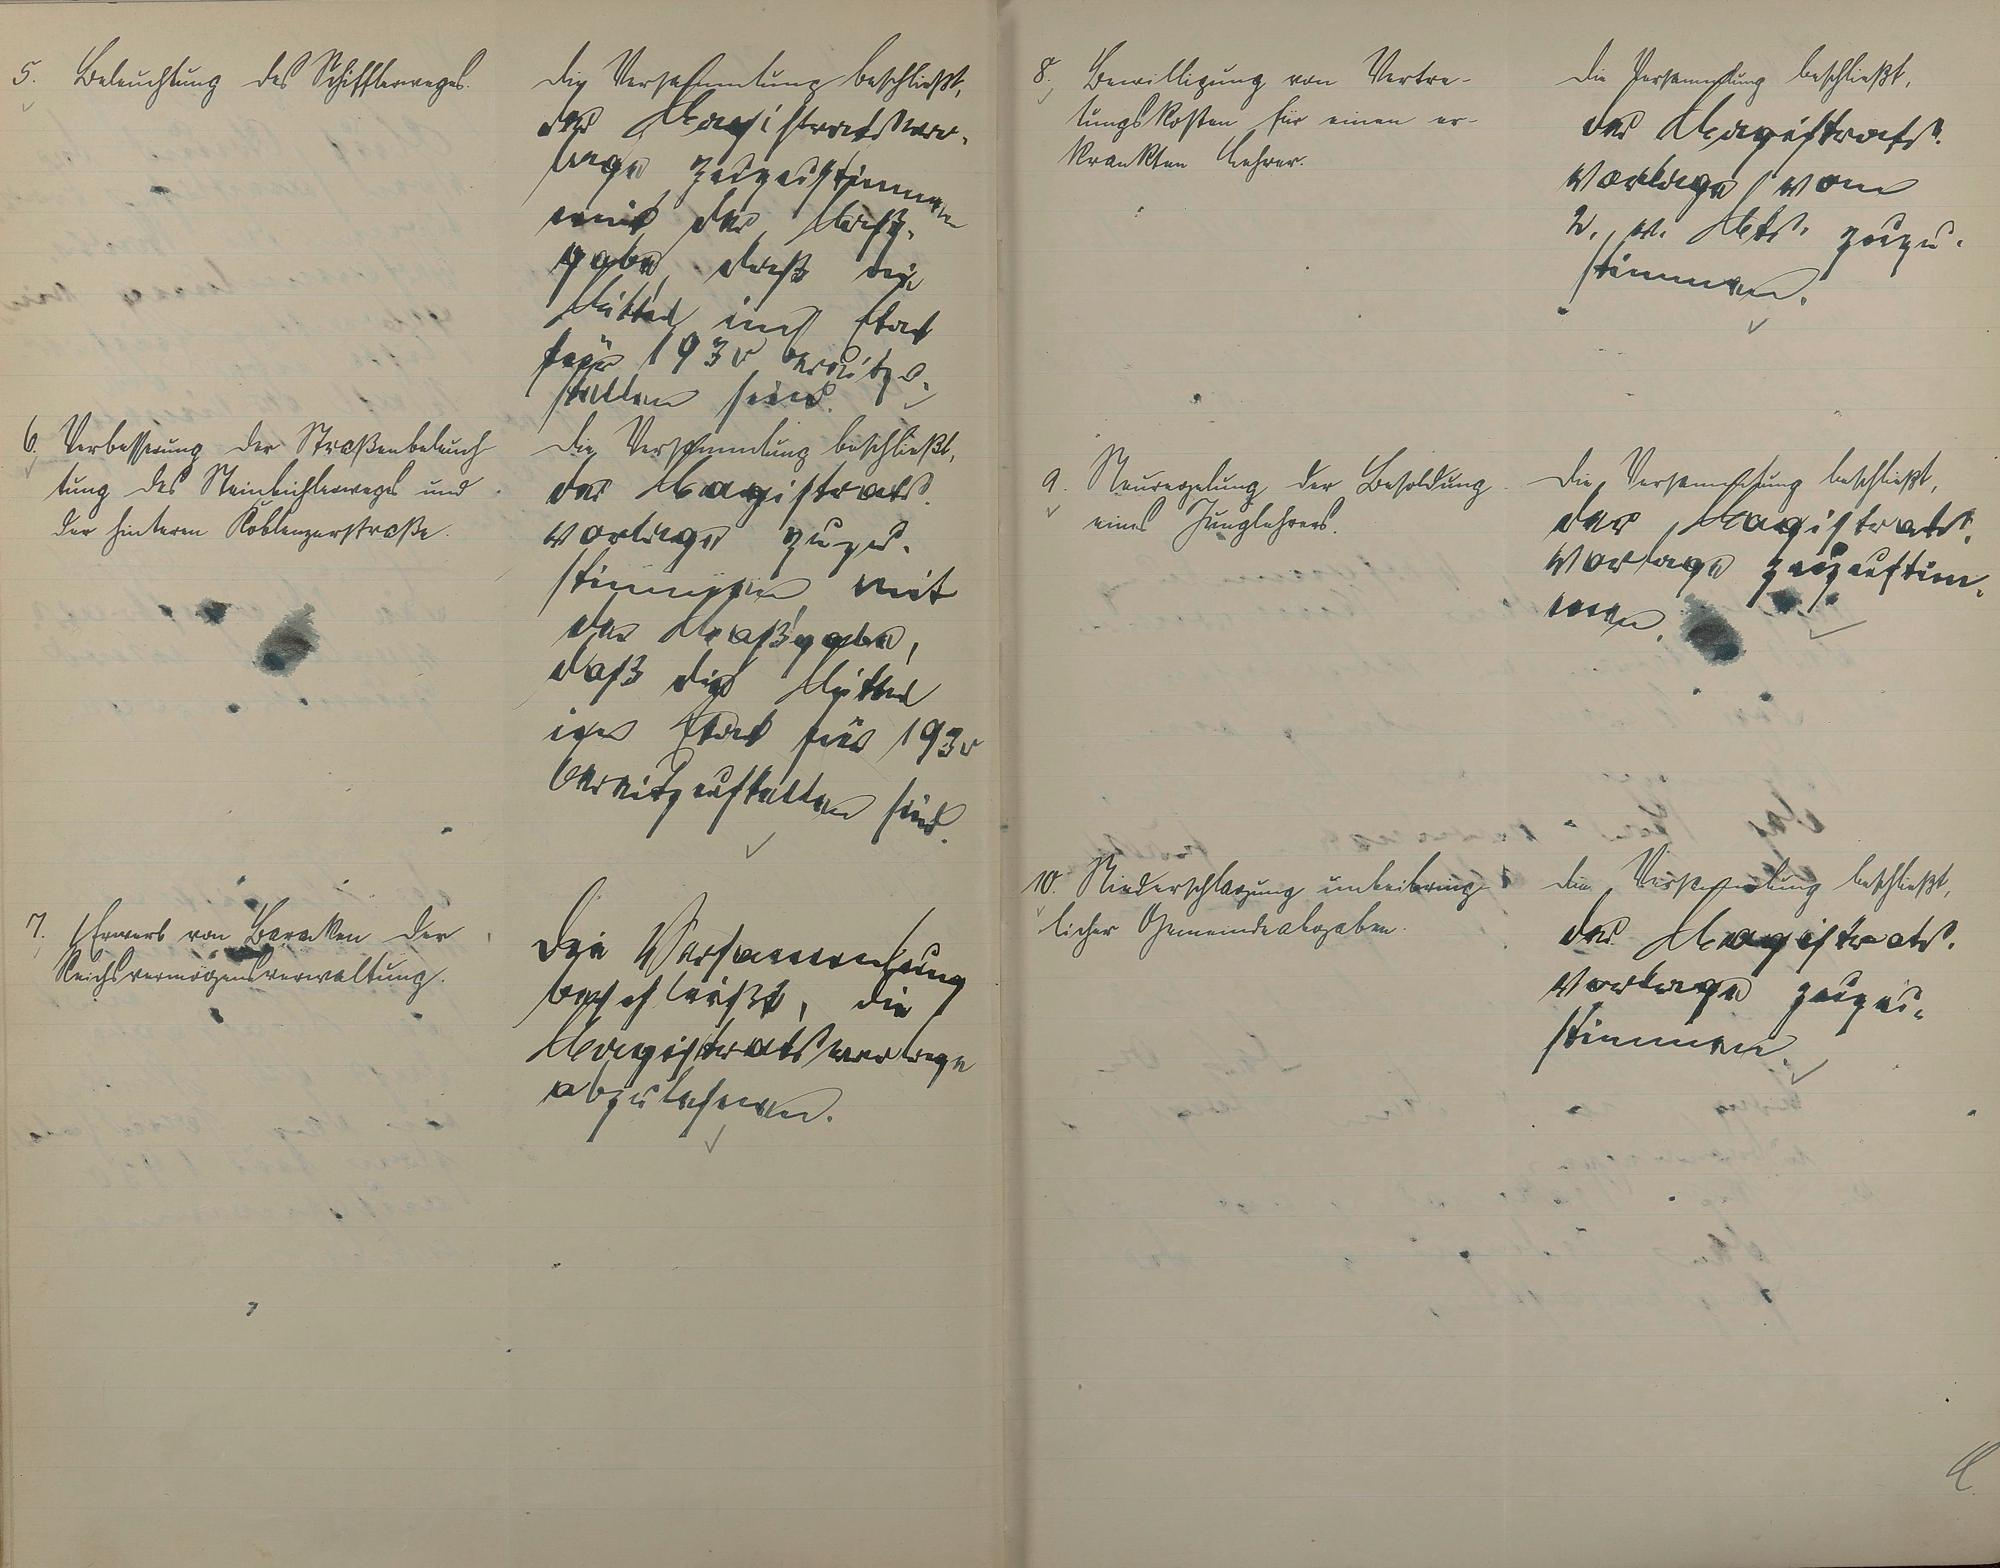 5. Beleuchtung des Schifflerweges.
Die Versammlung beschließt,
der Magistratsvor-
lage zuzustimmen
mit der Maß-
gabe, daß die
Mittel im Etat
für 1930 bereitzu-
stellen sind.
6. Verbesserung der Straßenbeleuch
tung des Steinbichlerweges und
der hinteren Koblenzerstraße.
Die Versammlung beschließt,
der Magistrats-
vorlage zuzu-
stimmen mit
der Maßgabe,
daß die Mittel
im Etat für 1930
bereitzustellen sind.
7. Erwerb von Baracken der
Reichsvermögensverwaltung.
Die Versammlung
beschließt, die
Magistratsvorlage
abzulehnen.
8. Bewilligung von Vertre-
tungskosten für einen er-
krankten Lehrer.
Die Versammlung beschließt,
der Magistrats-
vorlage vom
2. v. Mts. zuzu-
stimmen.
9. Neuregelung der Besoldung
eines Junglehrers.
Die Versammlung beschließt,
der Magistrats-
vorlage zuzustim-
men.
10. Niederschlagung unbeibring-
licher Gemeindeabgaben.
Die Versammlung beschließt,
der Magistrats-
vorlage zuzu-
stimmen.